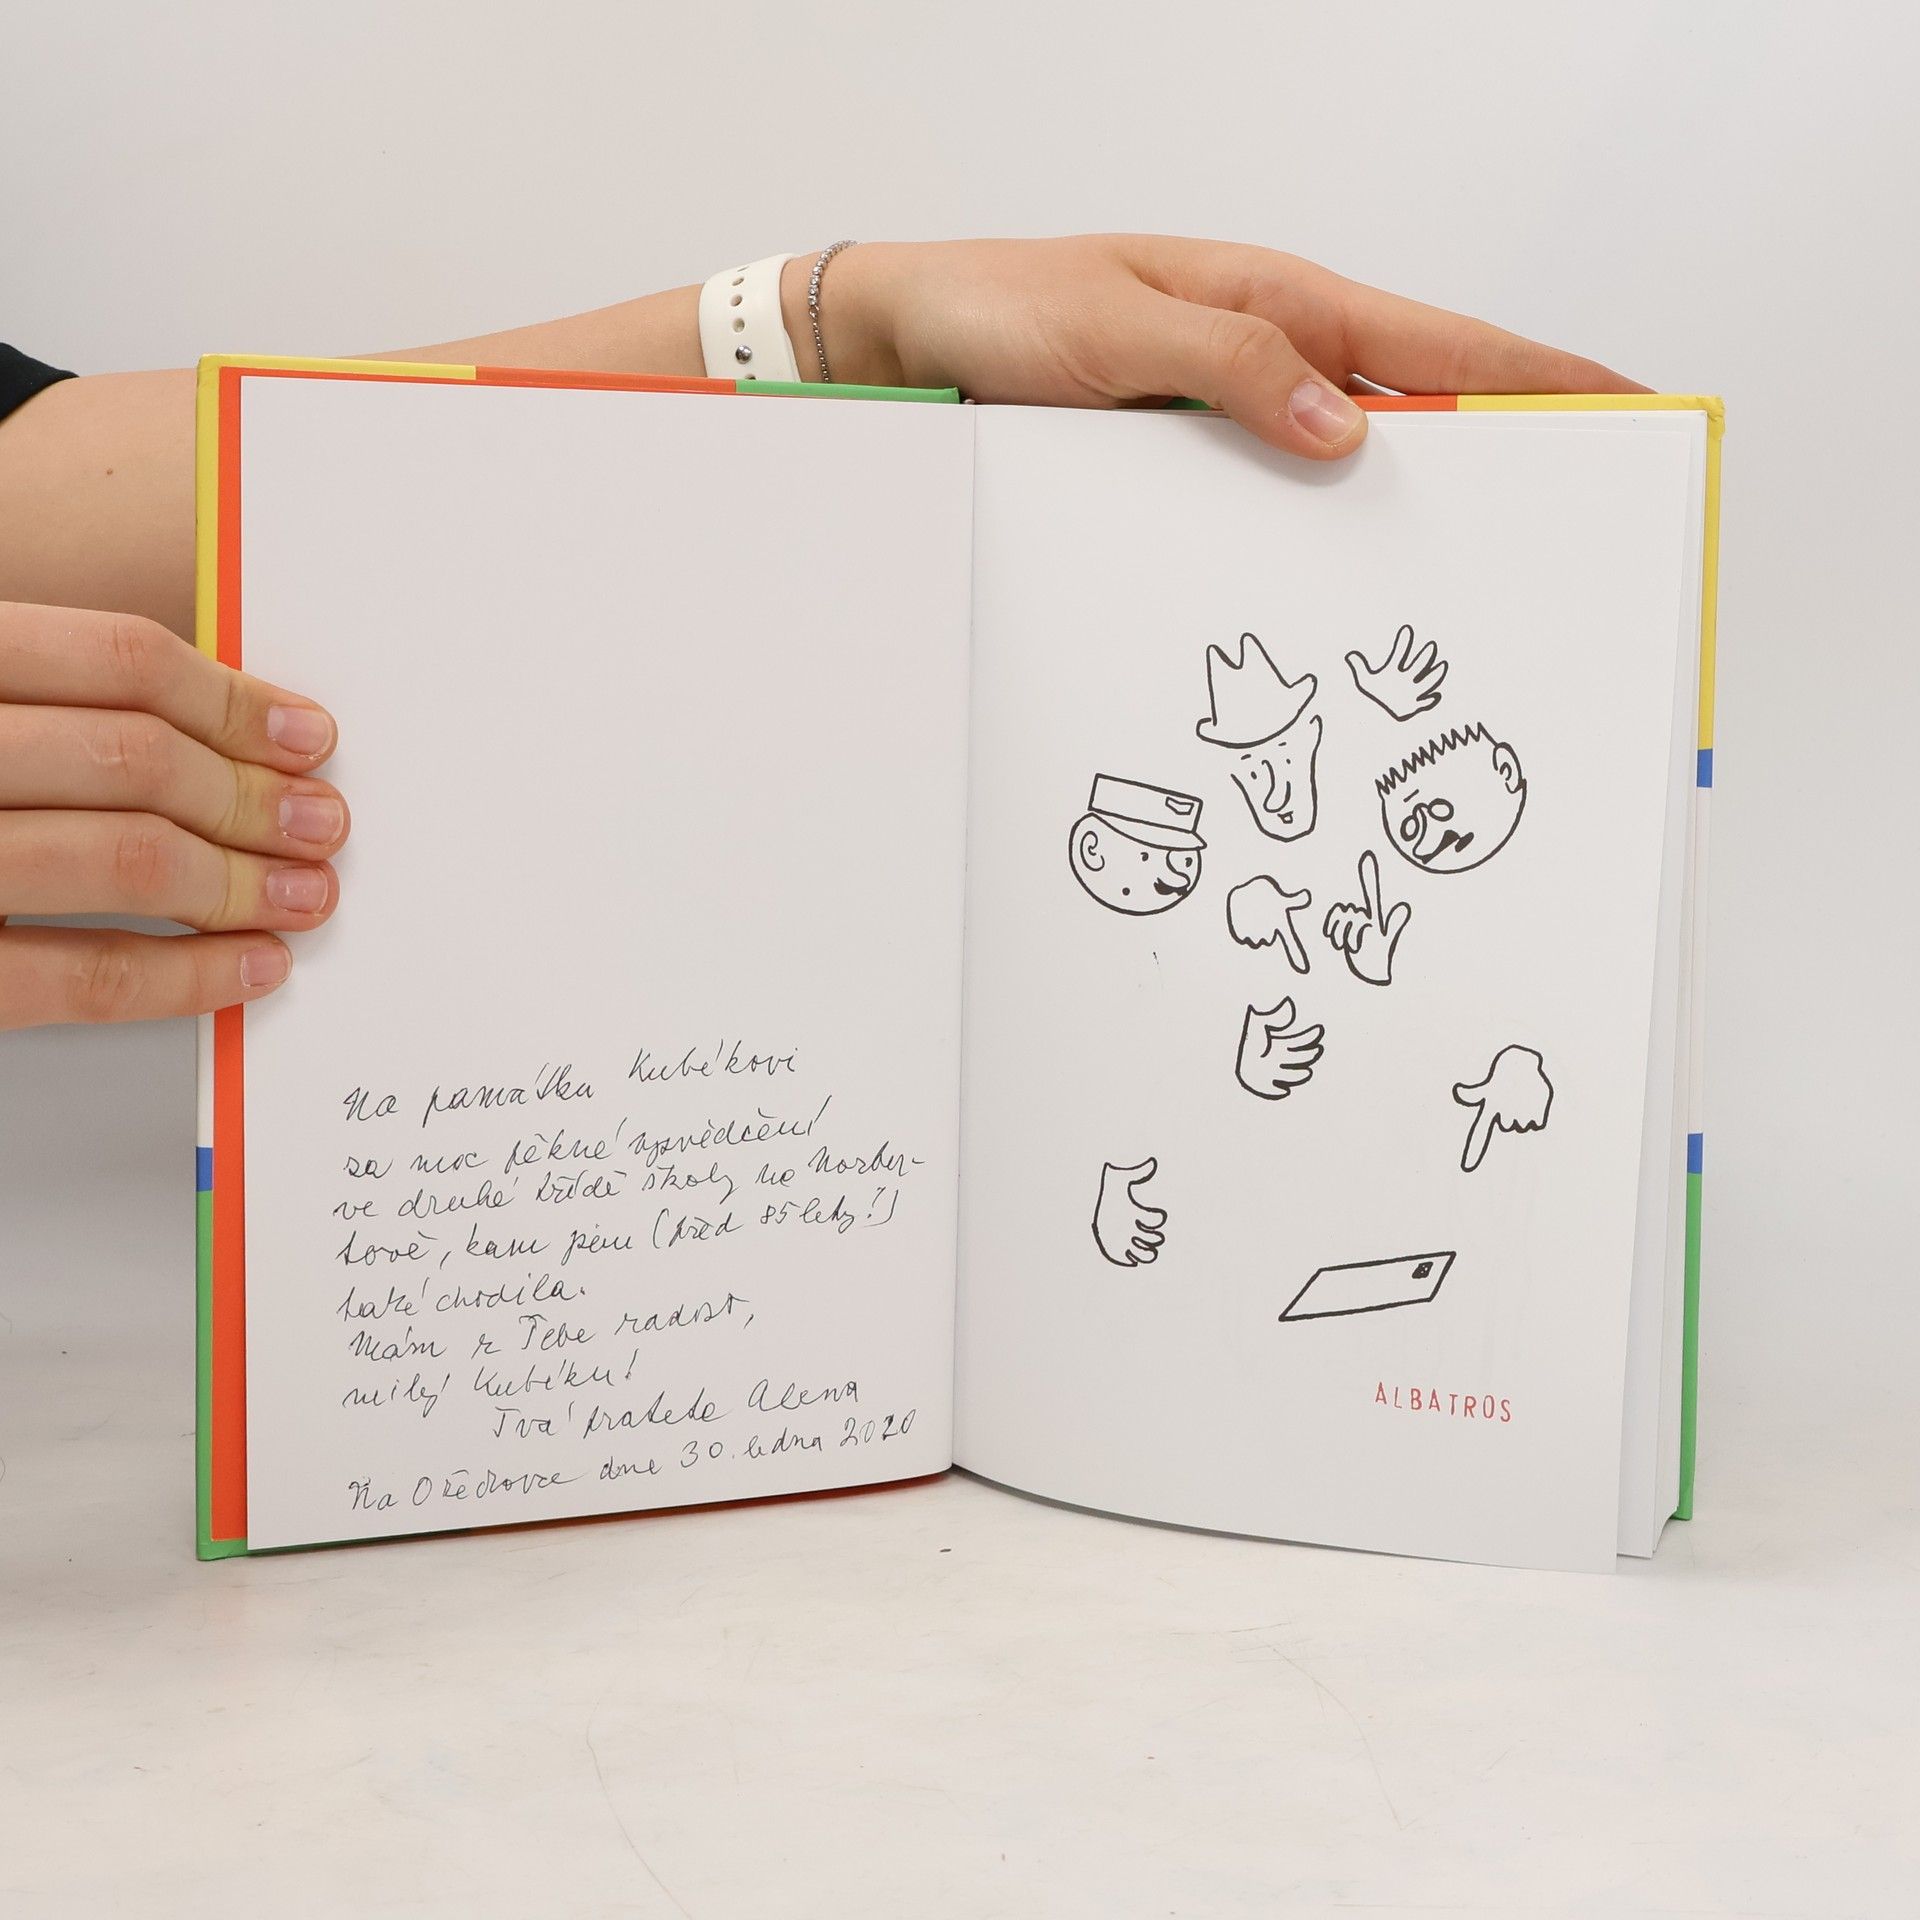 Na památku Kubékovi
za moc pěkné vysvědčení
ve druhé třídě školy na Norber-
tově, kam jsem (před 85 lety!)
také chodila.
Mám z Tebe radost,
milý Kubéku!
Tvá prateta Alena
Na Ořechovce dne 30. ledna 2020
ALBATROS